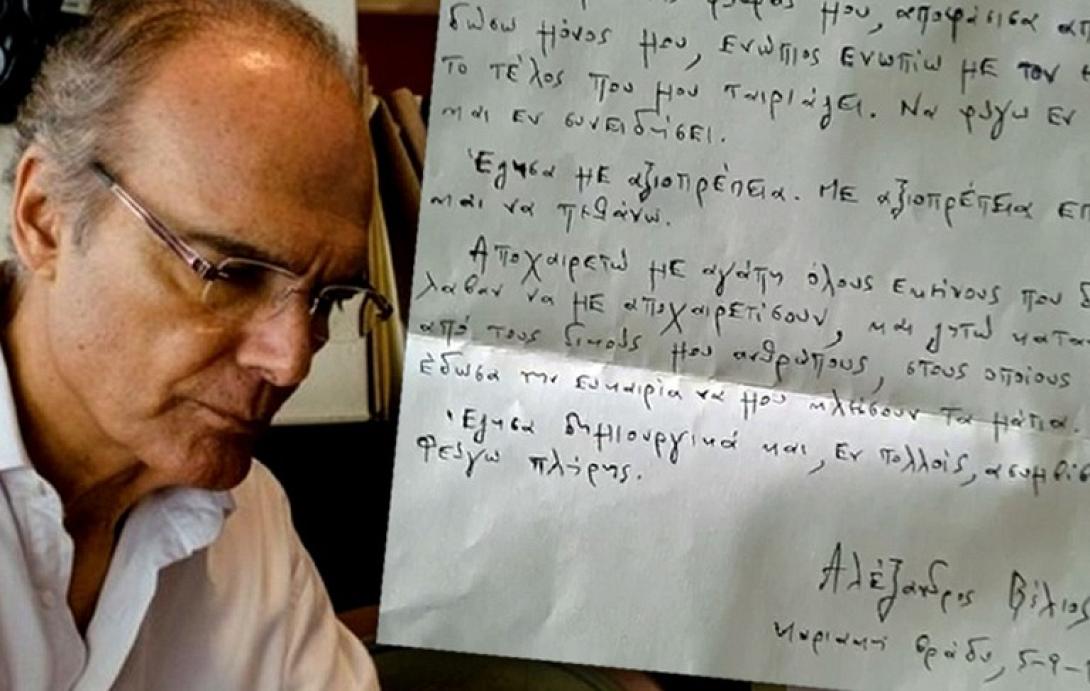 μου, αποφάσισα
δώσω μόνος μου, ενώπιος ενωπίω με τον
το τέλος που μου ταιριάζει. Να φύγω εν
και εν συνειδήσει.
Έζησα με αξιοπρέπεια. Με αξιοπρέπεια
και να πεθάνω.
Αποχαιρετώ με αγάπη όλους εκείνους που
λαβαν να με αποχαιρετίσουν, και ζητώ κατα
από τους δικούς μου ανθρώπους, στους οποίους
έδωσα την ευκαιρία να μου κλείσουν τα μάτια.
Έζησα δημιουργικά και, εν πολλοίς, ασυμβίβ
Φεύγω πλήρης.
Αλέξανδρος Βέλιος
Κυριακή βράδυ, 5-9-